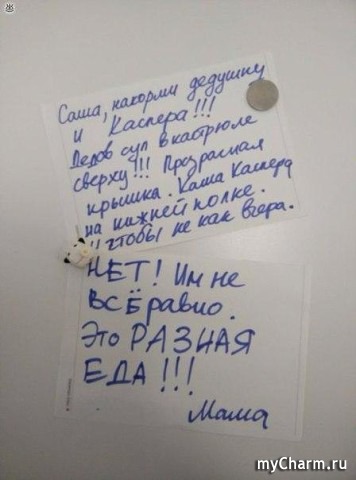 Саша, накорми дедушку
и Каспера!!!
Дедов суп в кастрюле
сверху!!! Прозрасная
крышка. Каша Каспера
на нижней полке.
И чтобы не как вчера.
НЕТ! Им не
ВСЁ равно.
Это РАЗНАЯ
ЕДА!!!
Мама
myCharm.ru